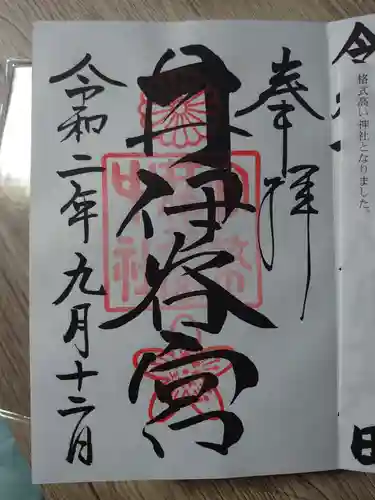 奉拝
井伊谷宮
令和二年九月十二日
格式高い神社となりました。
令
日